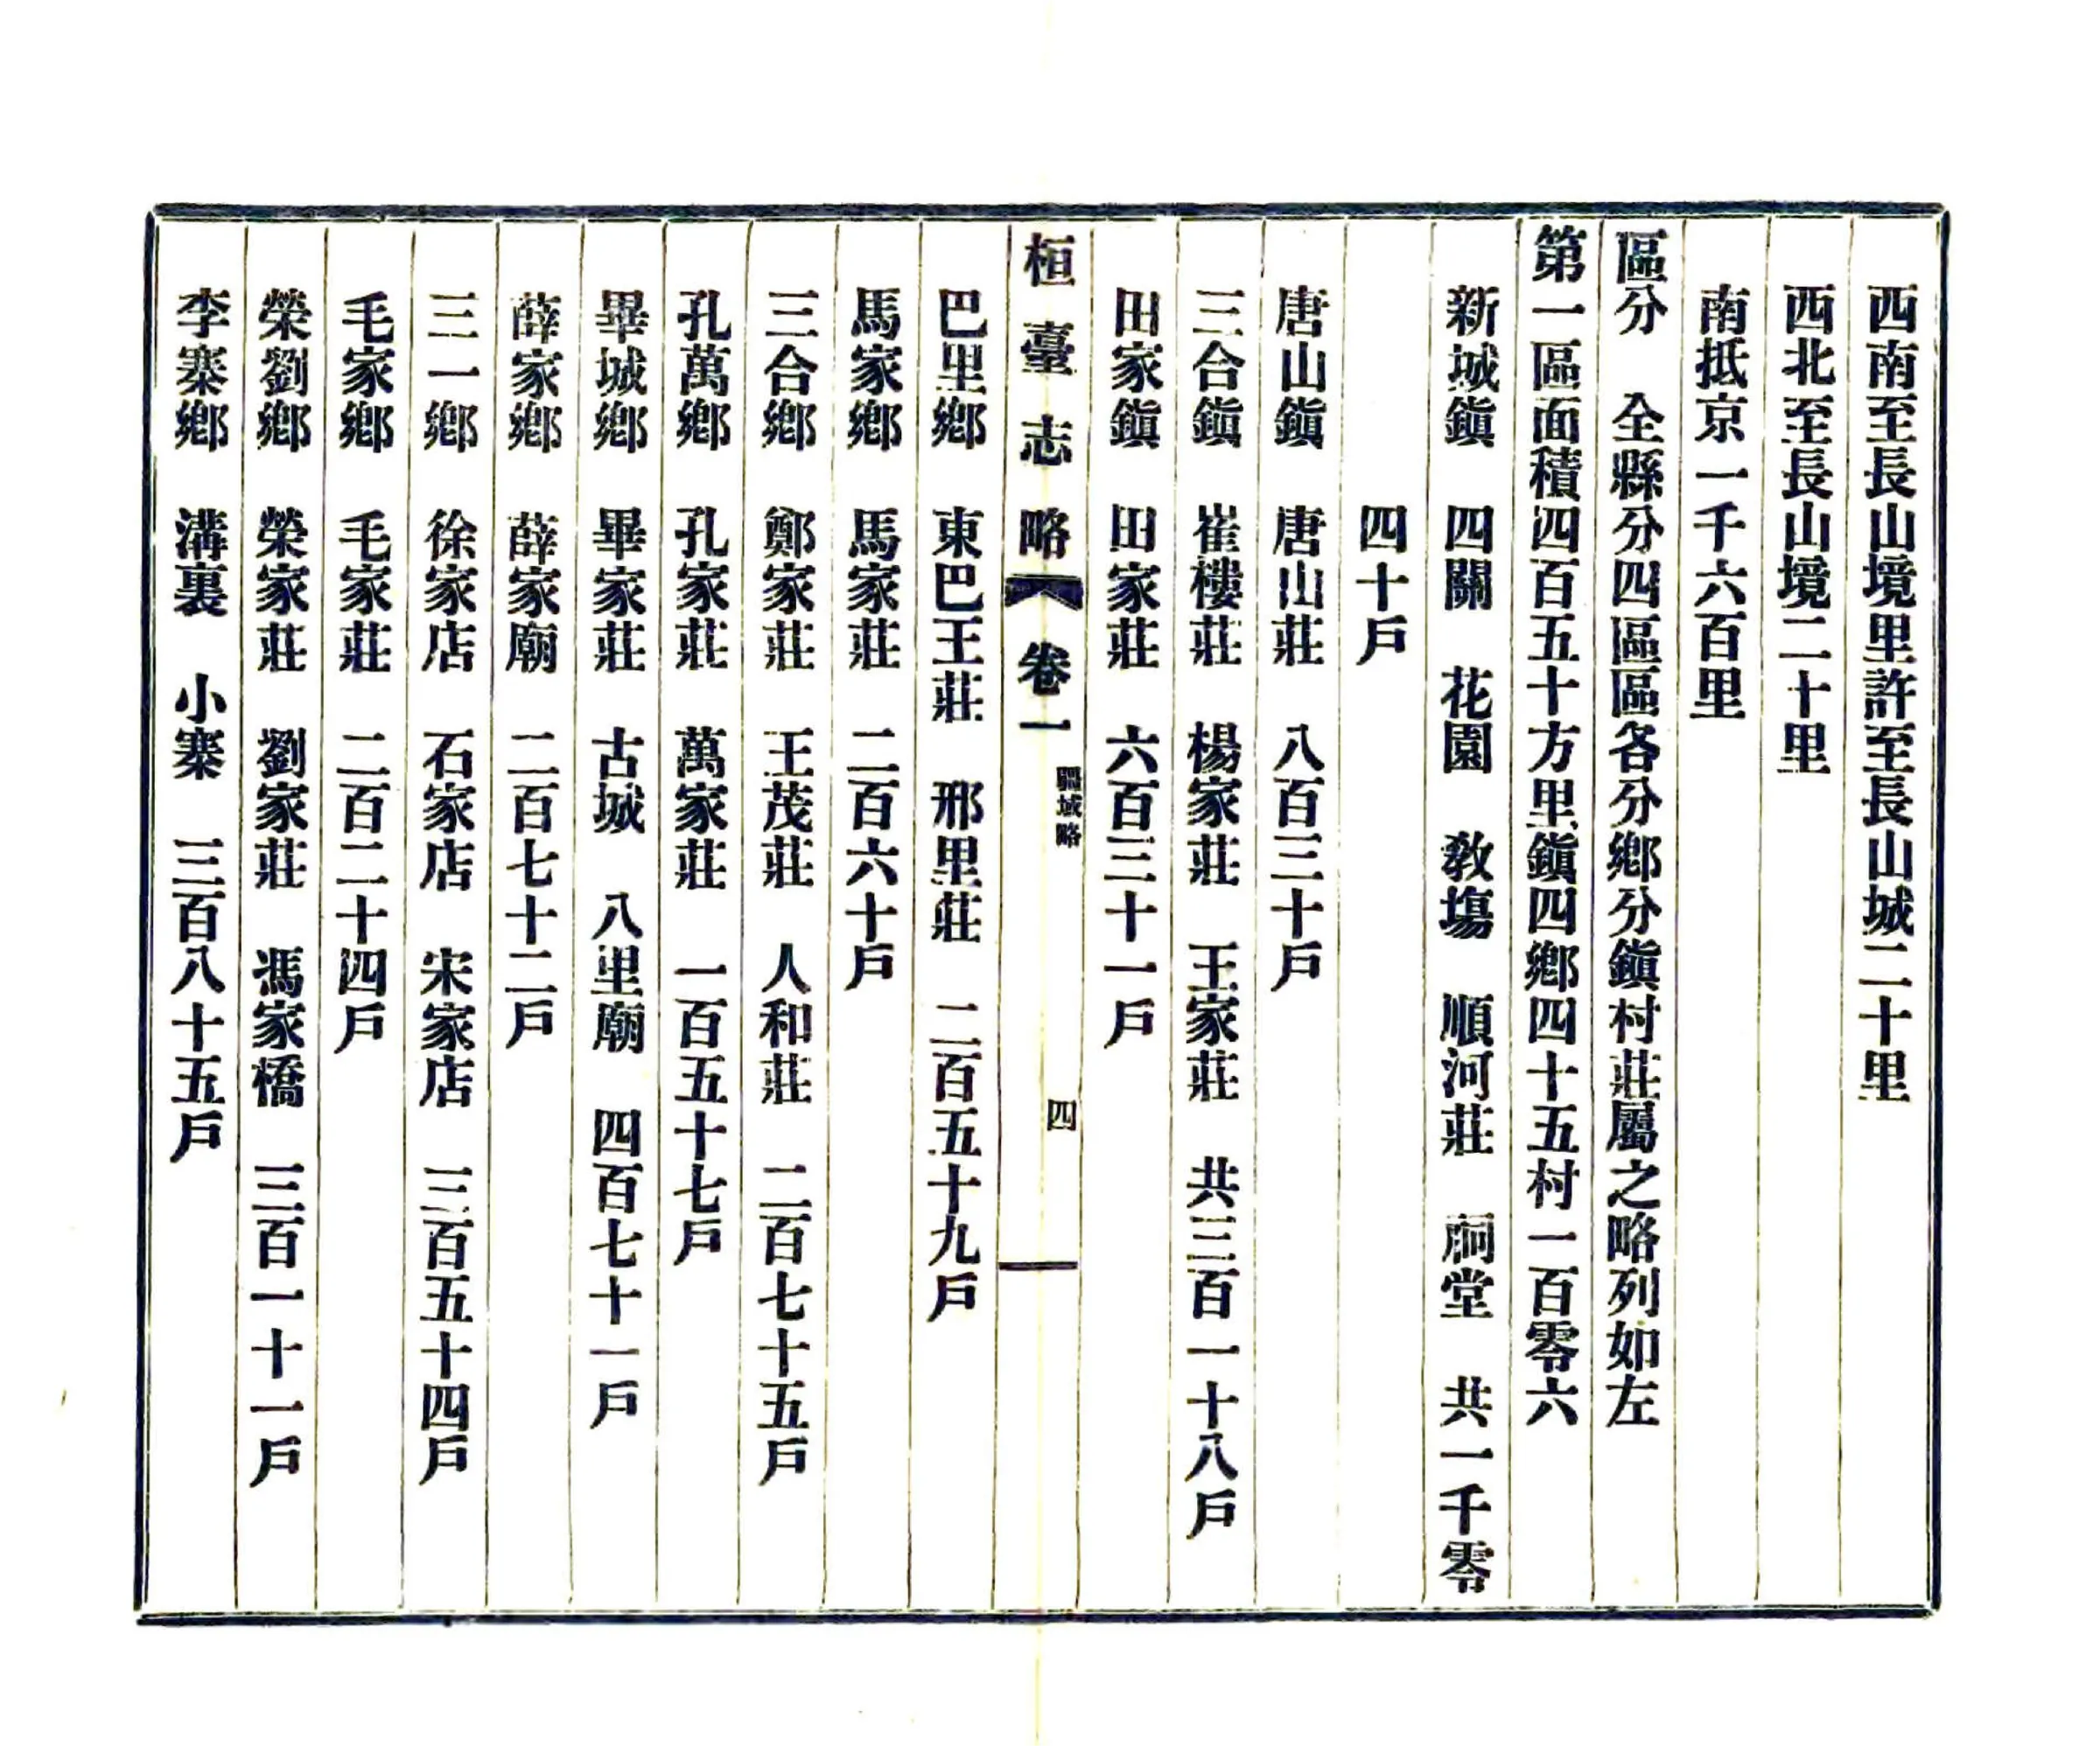 西南至長山境里許至長山城二十里
西北至長山境二十里
南抵京一千六百里
區分　全縣分四區區各分鄉分鎭村莊屬之略列如左
第一區面積四百五十方里鎭四鄉四十五村一百零六
新城鎭　四關　花園　敎塲　順河莊　祠堂　共一千零
四十戶
唐山鎭　唐山莊　八百三十戶
三合鎭　崔樓莊　楊家莊　王家莊　共三百一十八戶
田家鎭　田家莊　六百三十一戶
桓臺志略　卷一　疆域略　四
巴里鄉　東巴王莊　邢里莊　二百五十九戶
馬家鄉　馬家莊　二百六十戶
三合鄉　鄭家莊　王茂莊　人和莊　二百七十五戶
孔萬鄉　孔家莊　萬家莊　一百五十七戶
畢城鄉　畢家莊　古城　八里廟　四百七十一戶
薛家鄉　薛家廟　二百七十二戶
三一鄉　徐家店　石家店　宋家店　三百五十四戶
毛家鄉　毛家莊　二百二十四戶
榮劉鄉　榮家莊　劉家莊　馮家橋　三百一十一戶
李寨鄉　溝裏　小寨　三百八十五戶